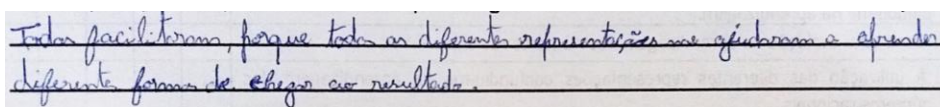 Todas facilitaram, porque todas as diferentes representações me ajudaram a aprender
diferentes formas de chegar ao resultado.